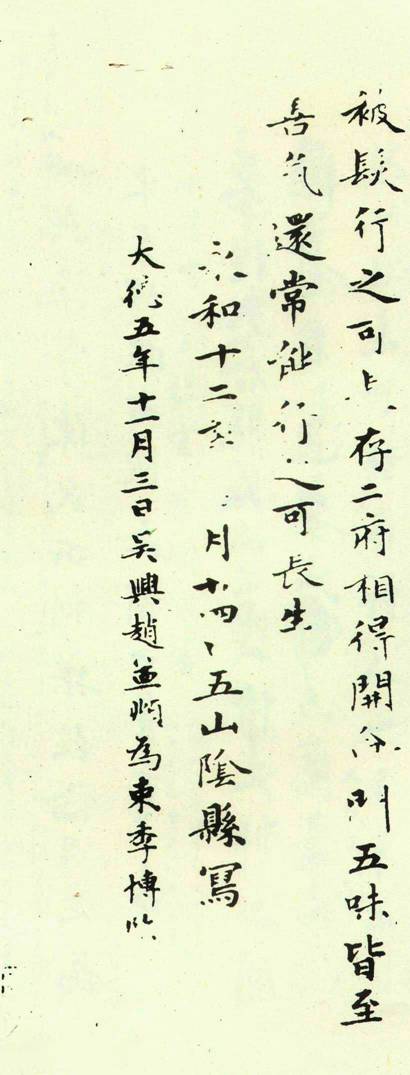 被髮行之可長存二府相得開命門五味皆至
善气還常能行之可長生
永和十二年 月廿四 五山陰縣寫
大德五年十一月三日吳興趙孟頫為束季博臨